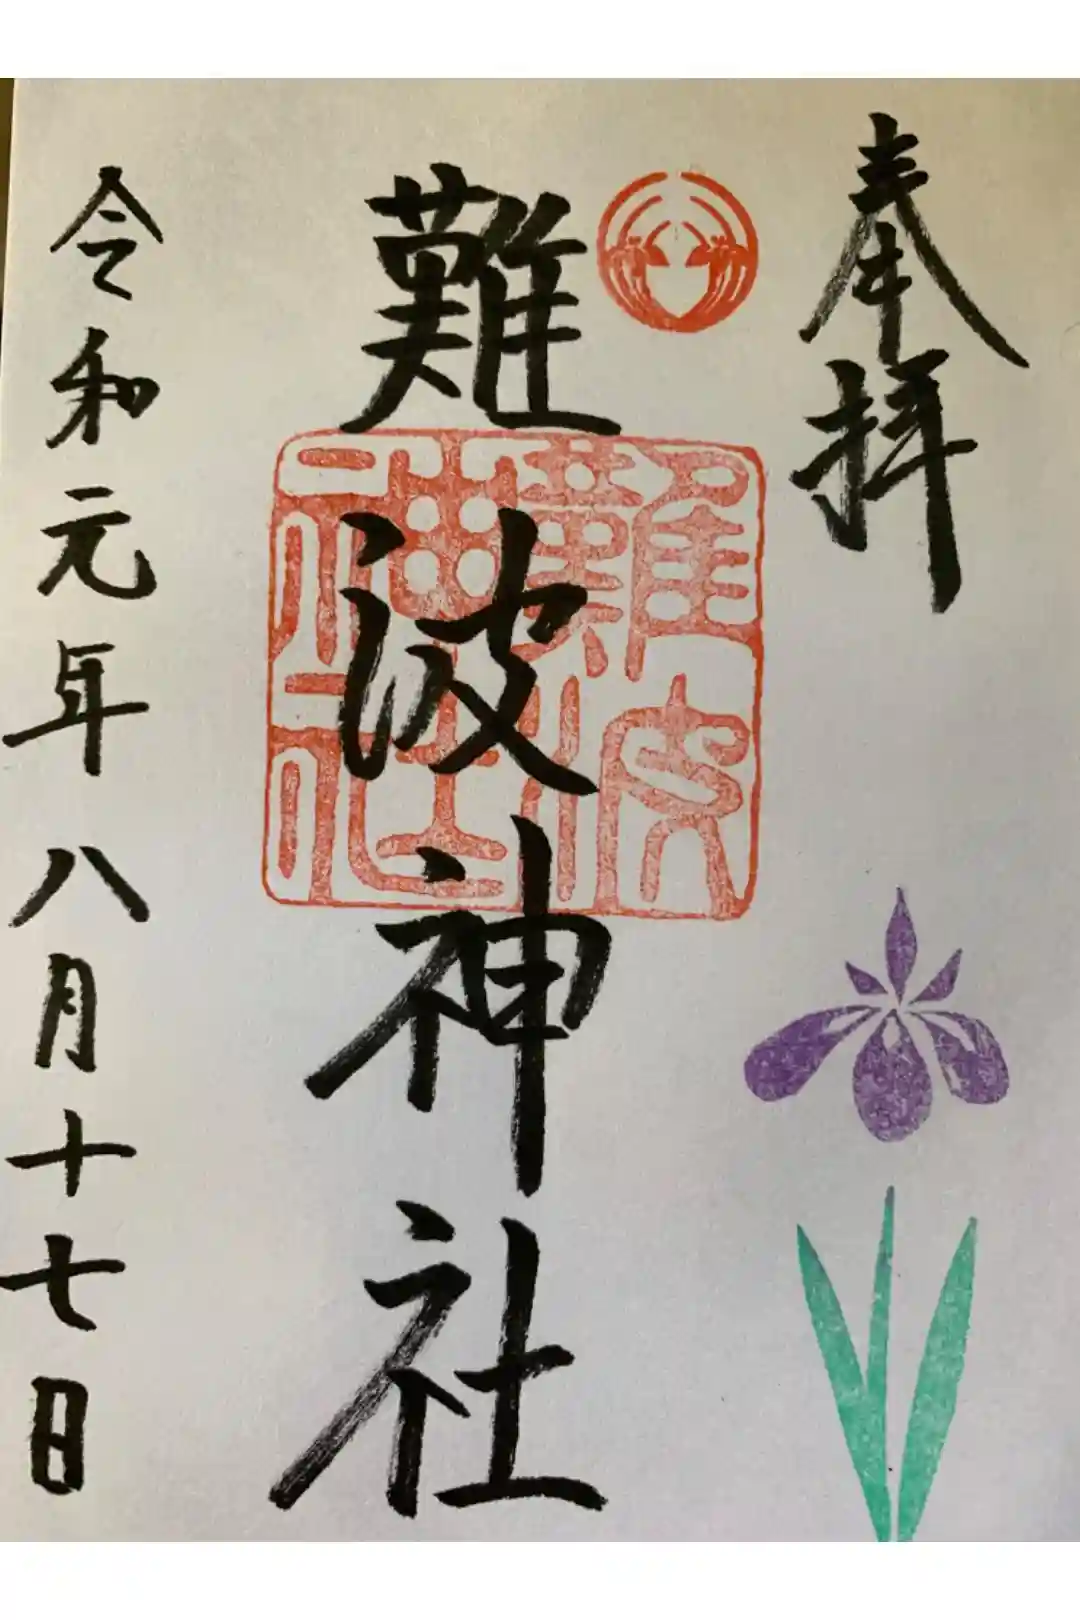 奉拝
難波神社
難波神社
令和元年八月十七日